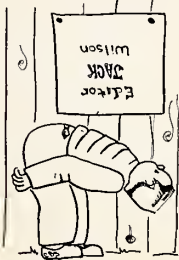 Editor
JACK
Wilson